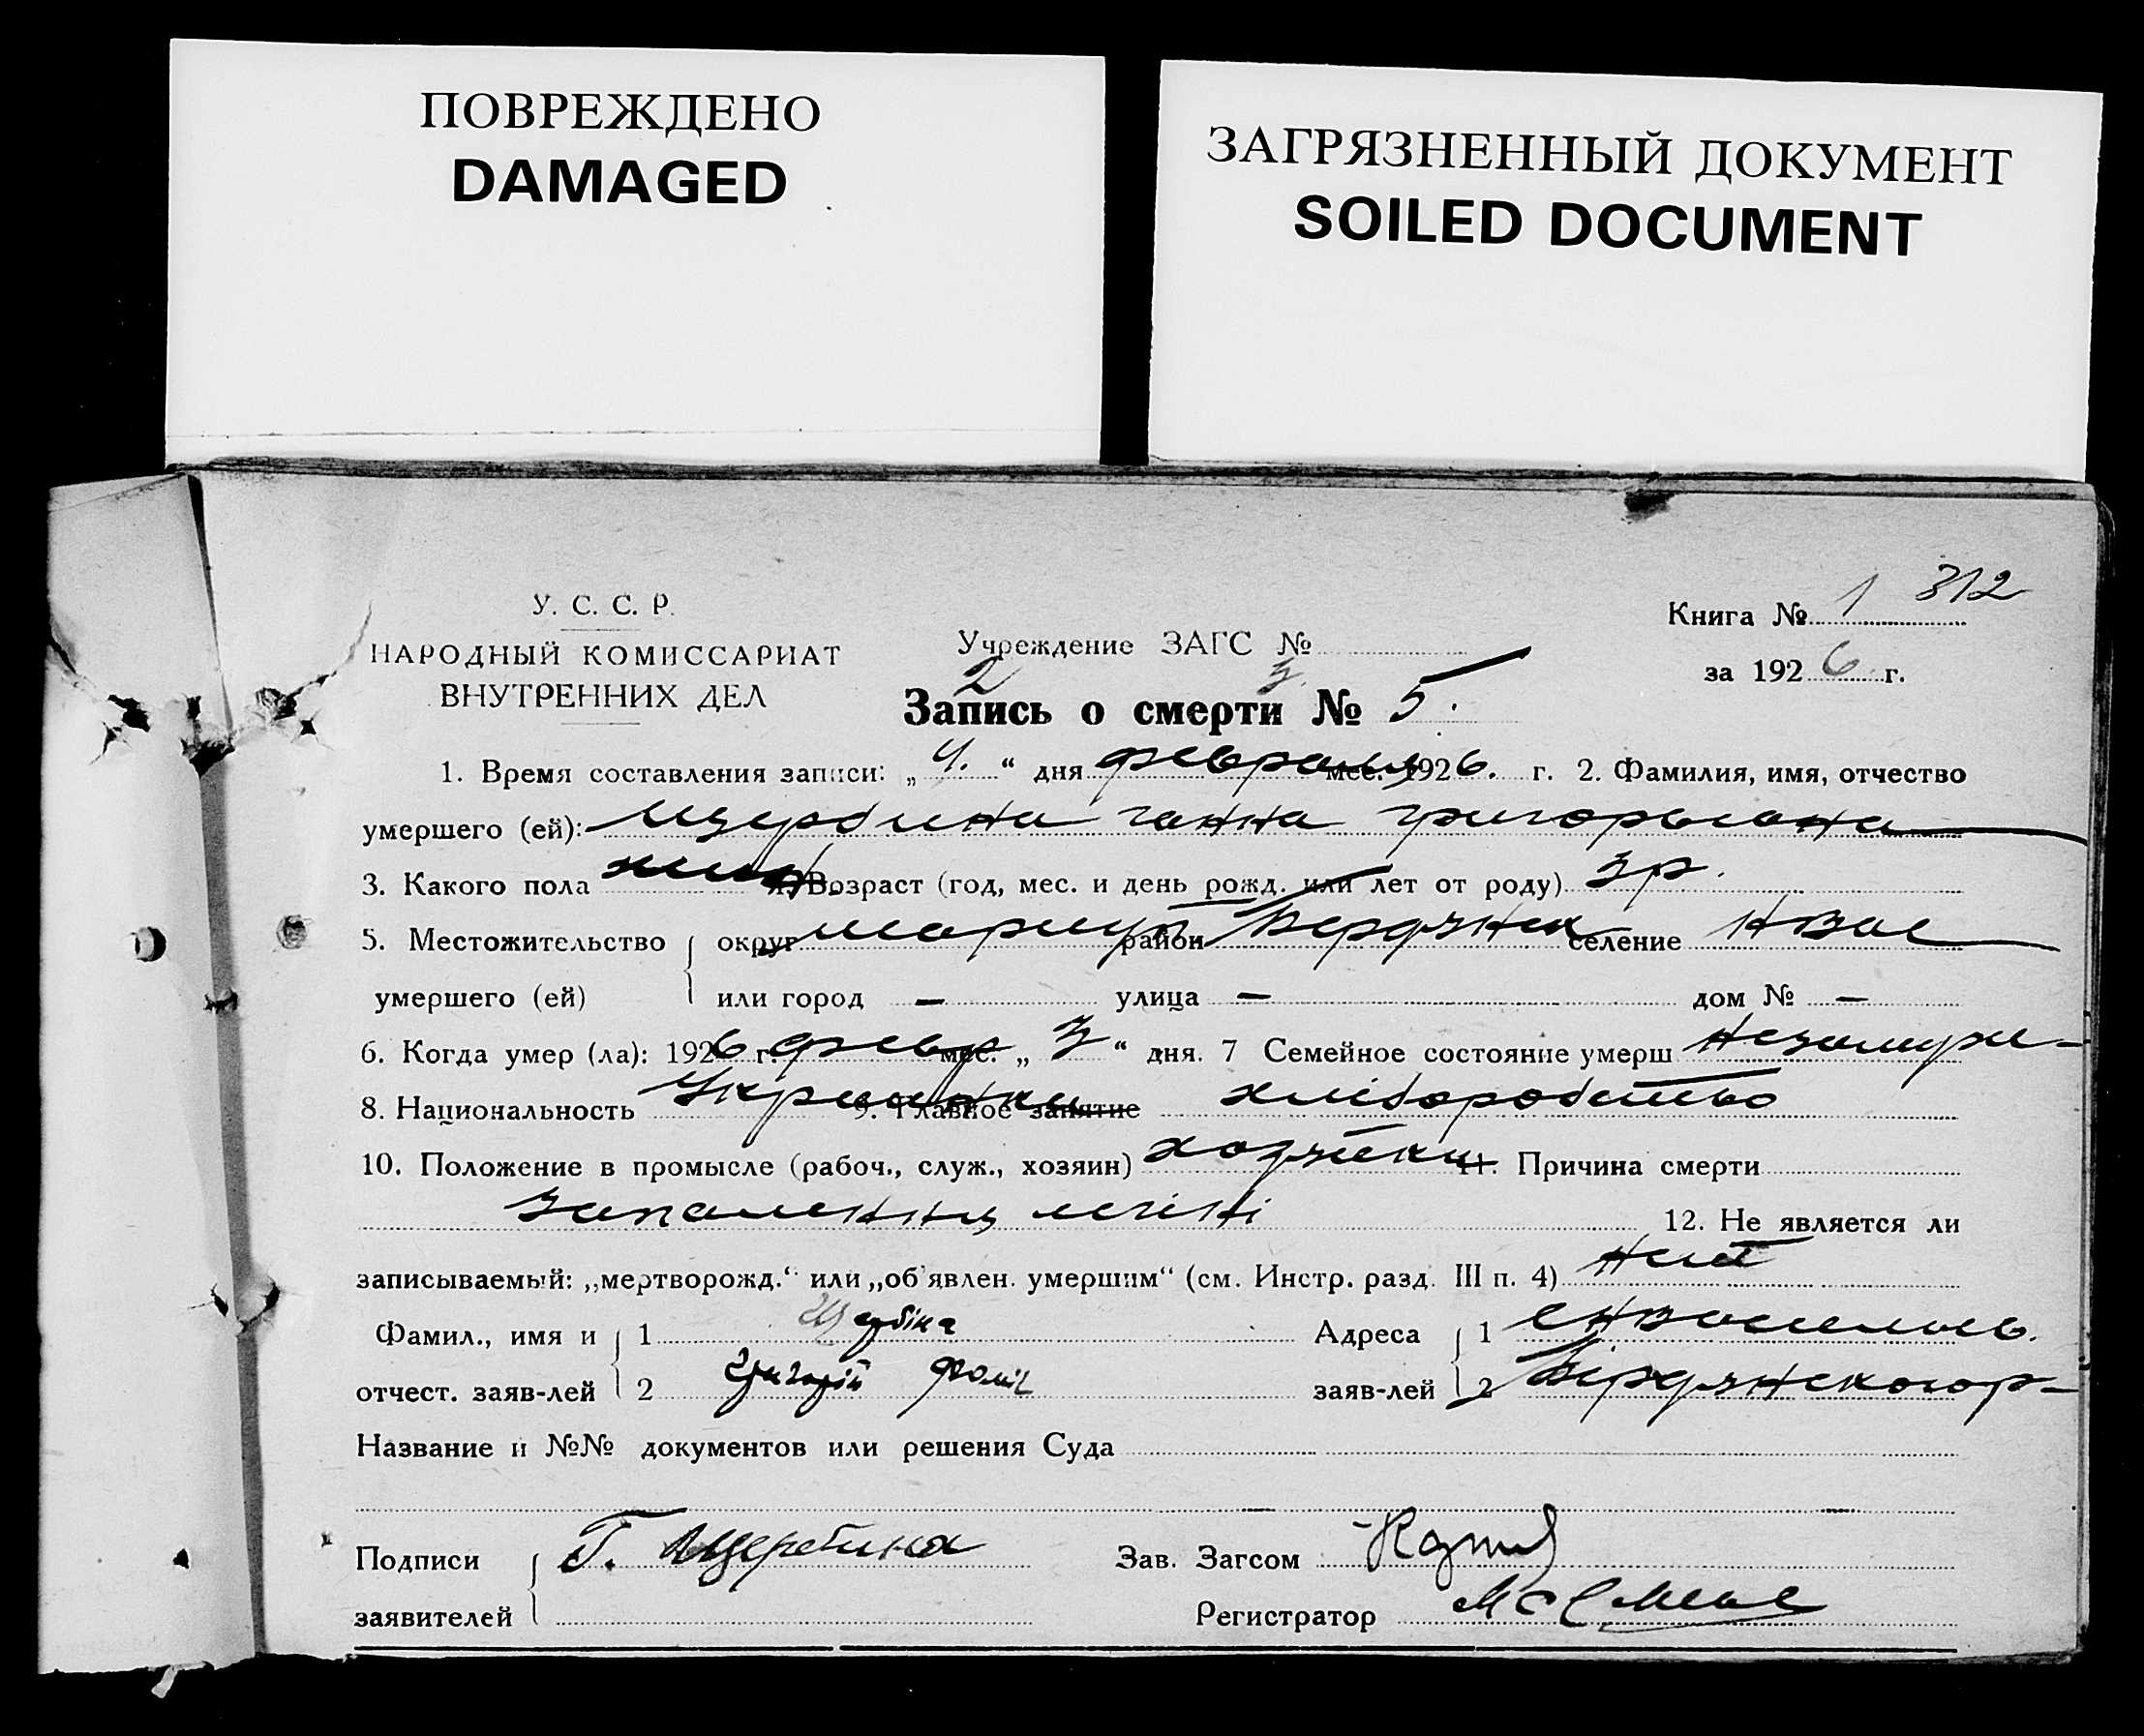 ПОВРЕЖДЕНО
DAMAGED
ЗАГРЯЗНЕННЫЙ ДОКУМЕНТ
SOILED DOCUMENT
У. С. С. Р.
НАРОДНЫЙ КОМИССАРИАТ
ВНУТРЕННИХ ДЕЛ
Книга № 1 312
за 1926 г.
Учреждение ЗАГС №
2 3
Запись о смерти № 5.
1. Время составления записи: „4.“ дня февраля мес. 1926. г. 2. Фамилия, имя, отчество
умершего (ей): Щербина ганна григорьевна
3. Какого пола жин. 4. Возраст (год, мес. и день рожд. или лет от роду) 3 р.
5. Местожительство округ Мариуп район Бердянск селение
умершего (ей) или город — улица — дом № —
6. Когда умер (ла): 1926 г. февр мес. „3“ дня. 7 Семейное состояние умерш незамуж-
8. Национальность Украинка 9. Главное занятие хліборобство
10. Положение в промысле (рабоч., служ., хозяин) хозяйка 11. Причина смерти
запалення легіні 12. Не является ли
записываемый: „мертворожд.“ или „об'явлен. умершим“ (см. Инстр. разд. III п. 4) ниt
Фамил., имя и 1 Щербіна Адреса 1
отчест. заяв-лей 2 Григорій Фоміч заяв-лей 2 Бердянского р-
Название и №№ документов или решения Суда
Подписи Г. Щербина Зав. Загсом
заявителей Регистратор